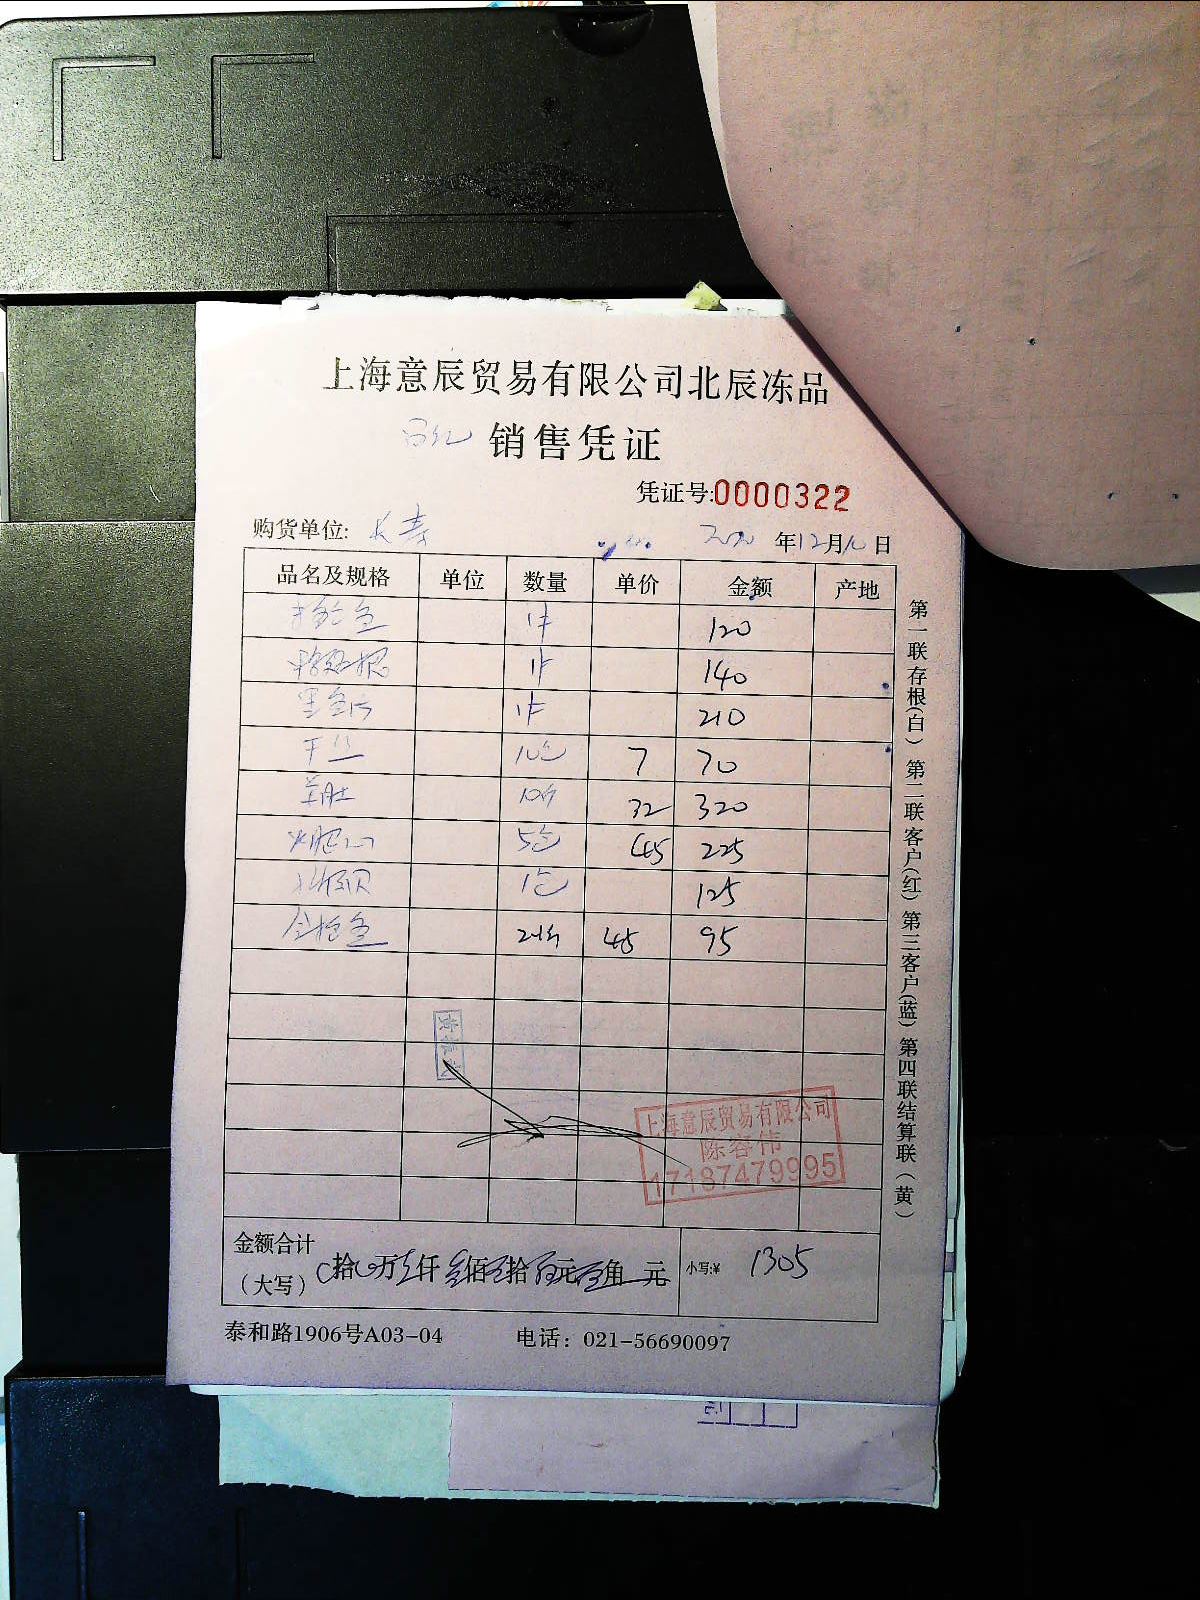 上海意辰贸易有限公司北辰冻品
销售凭证
凭证号:0000322
购货单位: 长寿 2020 年12月10日
品名及规格 单位 数量 单价 金额 产地
1件 120
1件 140
黑鱼片 1件 210
干丝 10包 7 70
羊肚 10个 32 320
火腿 5包 45 225
北极贝 1包 125
金枪鱼 45 95
黄振
上海意辰贸易有限公司
陈容伟
17187479995
金额合计
(大写) 拾 万 仟 佰 拾 元 角 元 小写:¥ 1305
泰和路1906号A03-04 电话: 021-56690097
第一联存根(白) 第二联客户(红) 第三客户(蓝) 第四联结算联(黄)